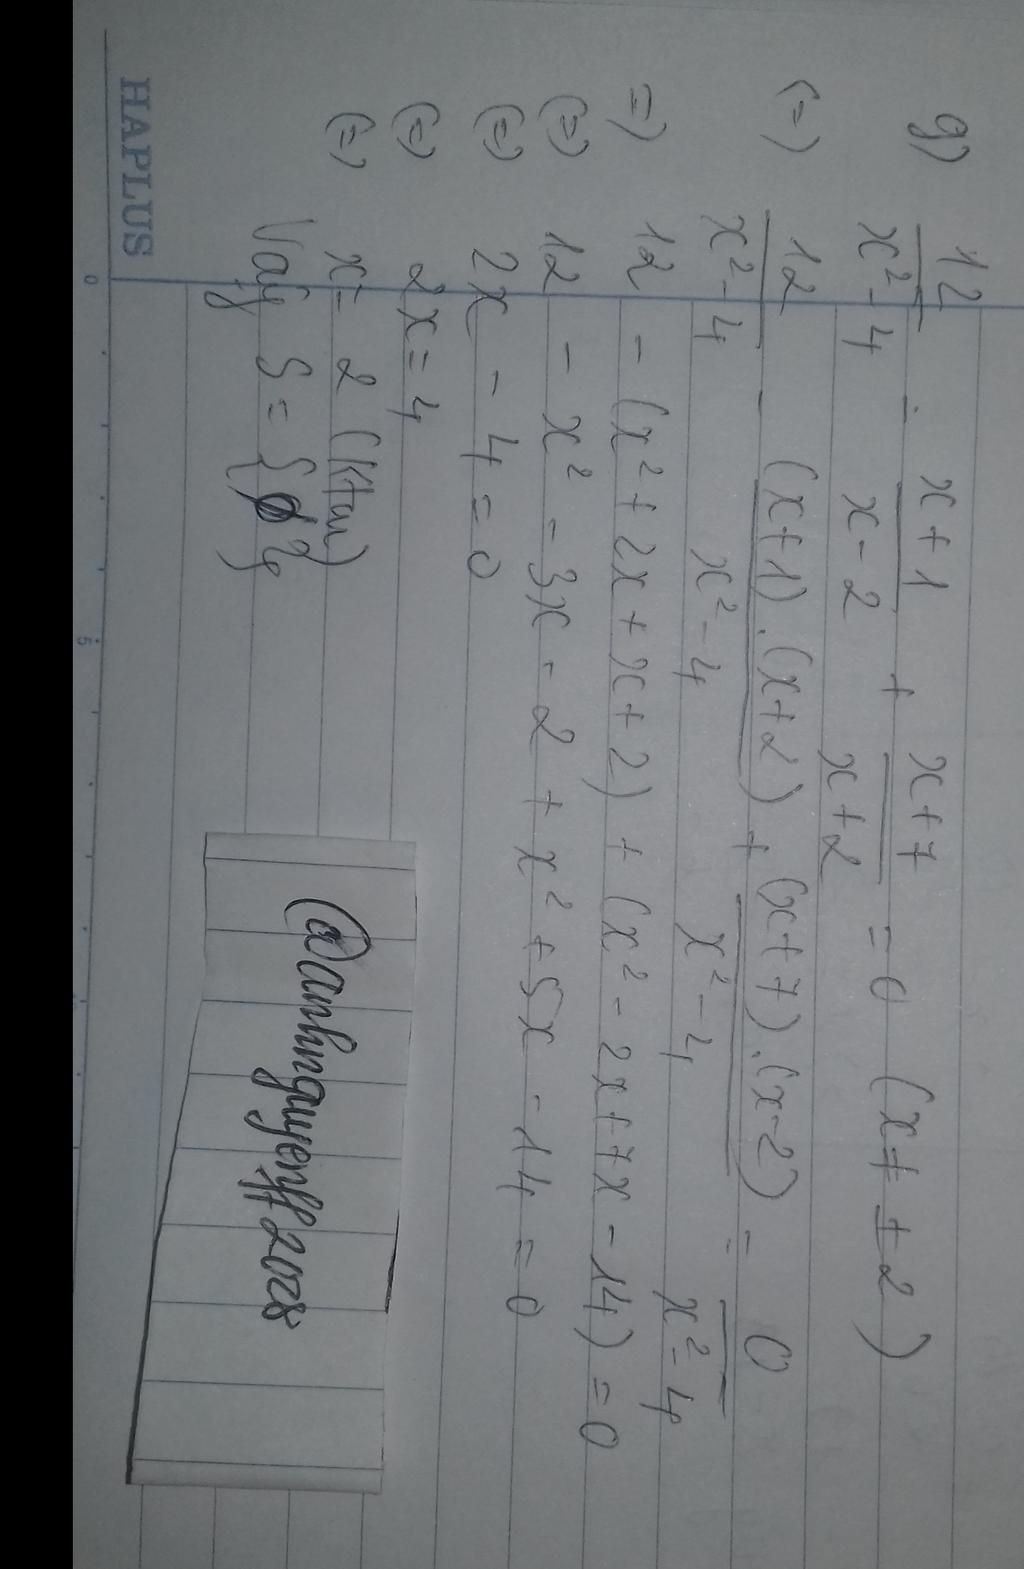 g) 12/x²-4 - x+1/x-2 + x+7/x+2 = 0 (x ≠ ±2)
(=) 12/x²-4 - (x+1).(x+2)/x²-4 + (x+7).(x-2)/x²-4 = 0/x²-4
=) 12 - (x²+2x+x+2) + (x²-2x+7x-14) = 0
(=) 12 - x² - 3x - 2 + x² + 5x - 14 = 0
(=) 2x - 4 = 0
(=) 2x = 4
(=) x = 2 (ktm)
Vậy S = {ø}
@anhnguyenff2028
HAPLUS
0
5